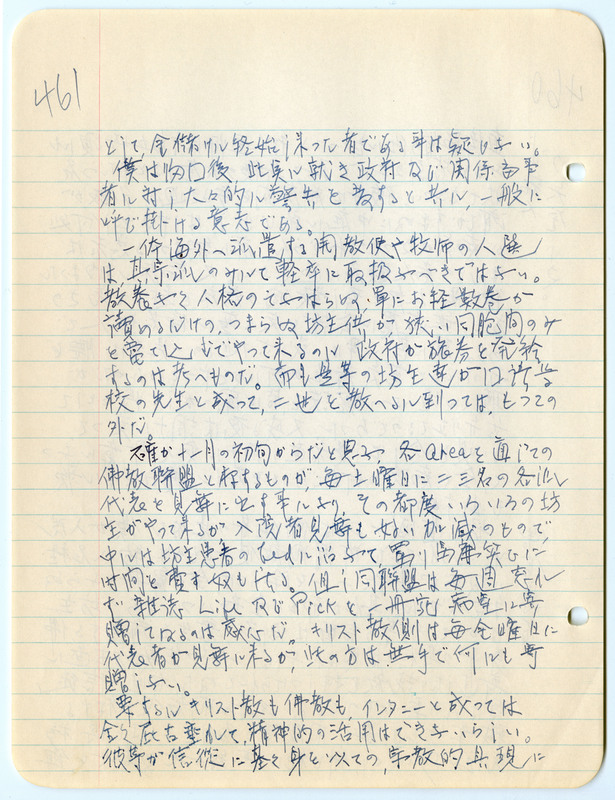 461
として金儲けに終始し来つた者である事は疑ひない。
僕は帰口後、此実に就き政府及び関係当事
者に対し大々的に警告を発すると共に、一般に
呼び掛ける意志である。
一体海外へ派遣する開教使や牧師の人選
は、其宗派のみにて軽卒に取扱ふべきではない。
教養なく人格のそなはらぬ、単にお経数巻が
読めるだけの、つまらぬ坊主供が狭い同胞間のみ
を当て込んでやつて来るのに、政府が旅券を発給
するのは考へものだ。而も是等の坊主達が口語学
校の先生と成つて、二世を教へるに到つては、もつての
外だ。
確か十一月の初旬からだと思ふ、各areaを通じての
佛教聯盟と称するものが、毎土曜日に二三名の各派
代表を見舞に出す事になり、その都度いろいろの坊
主がやつて来るが入院者見舞も好い加減のもので、
中には坊主患者のbedに沿ふて、
時間を費す奴も居る。但し同聯盟は毎週忘れ
ず雑誌Life及びPickを一冊宛病室に寄
贈してゐるのは感心だ。キリスト教側は毎金曜日に
代表者が見舞に来るが、此の方は無手で何にも寄
贈しない。
要するにキリスト教も佛教も、インタニーと成つては
全く屁古垂れて、精神的の活用はできないらしい。
彼等が信従に基く身を以ての、宗教的具現に